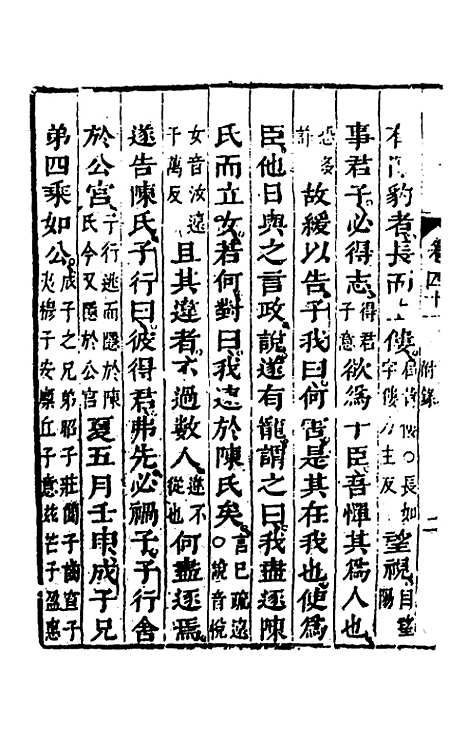 卷四十 附錄 二
豹者長而上僂肩背僂○長如字僂力主反望視目望陽
事君子必得志得君子意欲爲子臣吾憚其爲人也
恐多詐故緩以告子我曰何害是其在我也使爲
臣他日與之言政說遂有寵謂之曰我盡逐陳
氏而立女若何對曰我遠於陳氏矣言己疏遠○說音悅
女音汝遠于萬反且其違者不過數人違不從也何盡逐焉
遂告陳氏子行曰彼得君弗先必禍子子行舍
於公宮子行逃而隱於陳氏今又隱於公宮夏五月壬申成子兄
弟四乘如公成子之兄弟昭子莊簡子齒宣子夷穆子安廩丘子意茲芒子盈惠